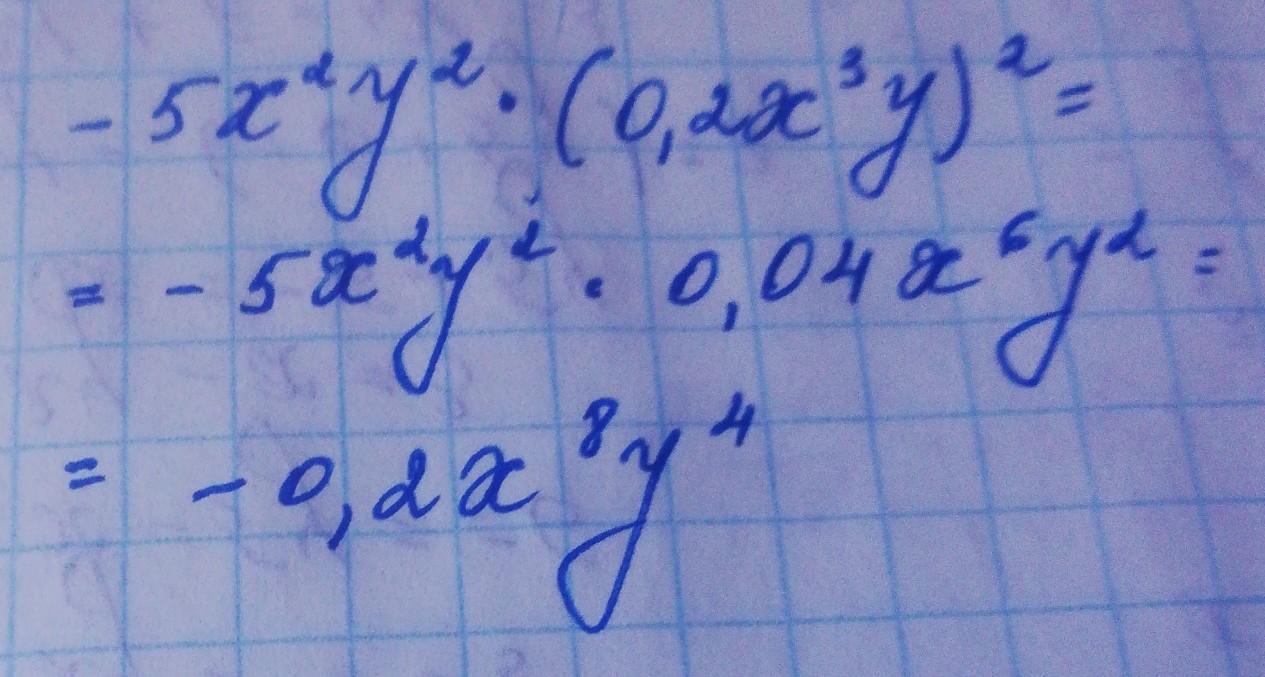 -5x²y² · (0,2x³y)² =
= -5x²y² · 0,04x⁶y² =
= -0,2x⁸y⁴